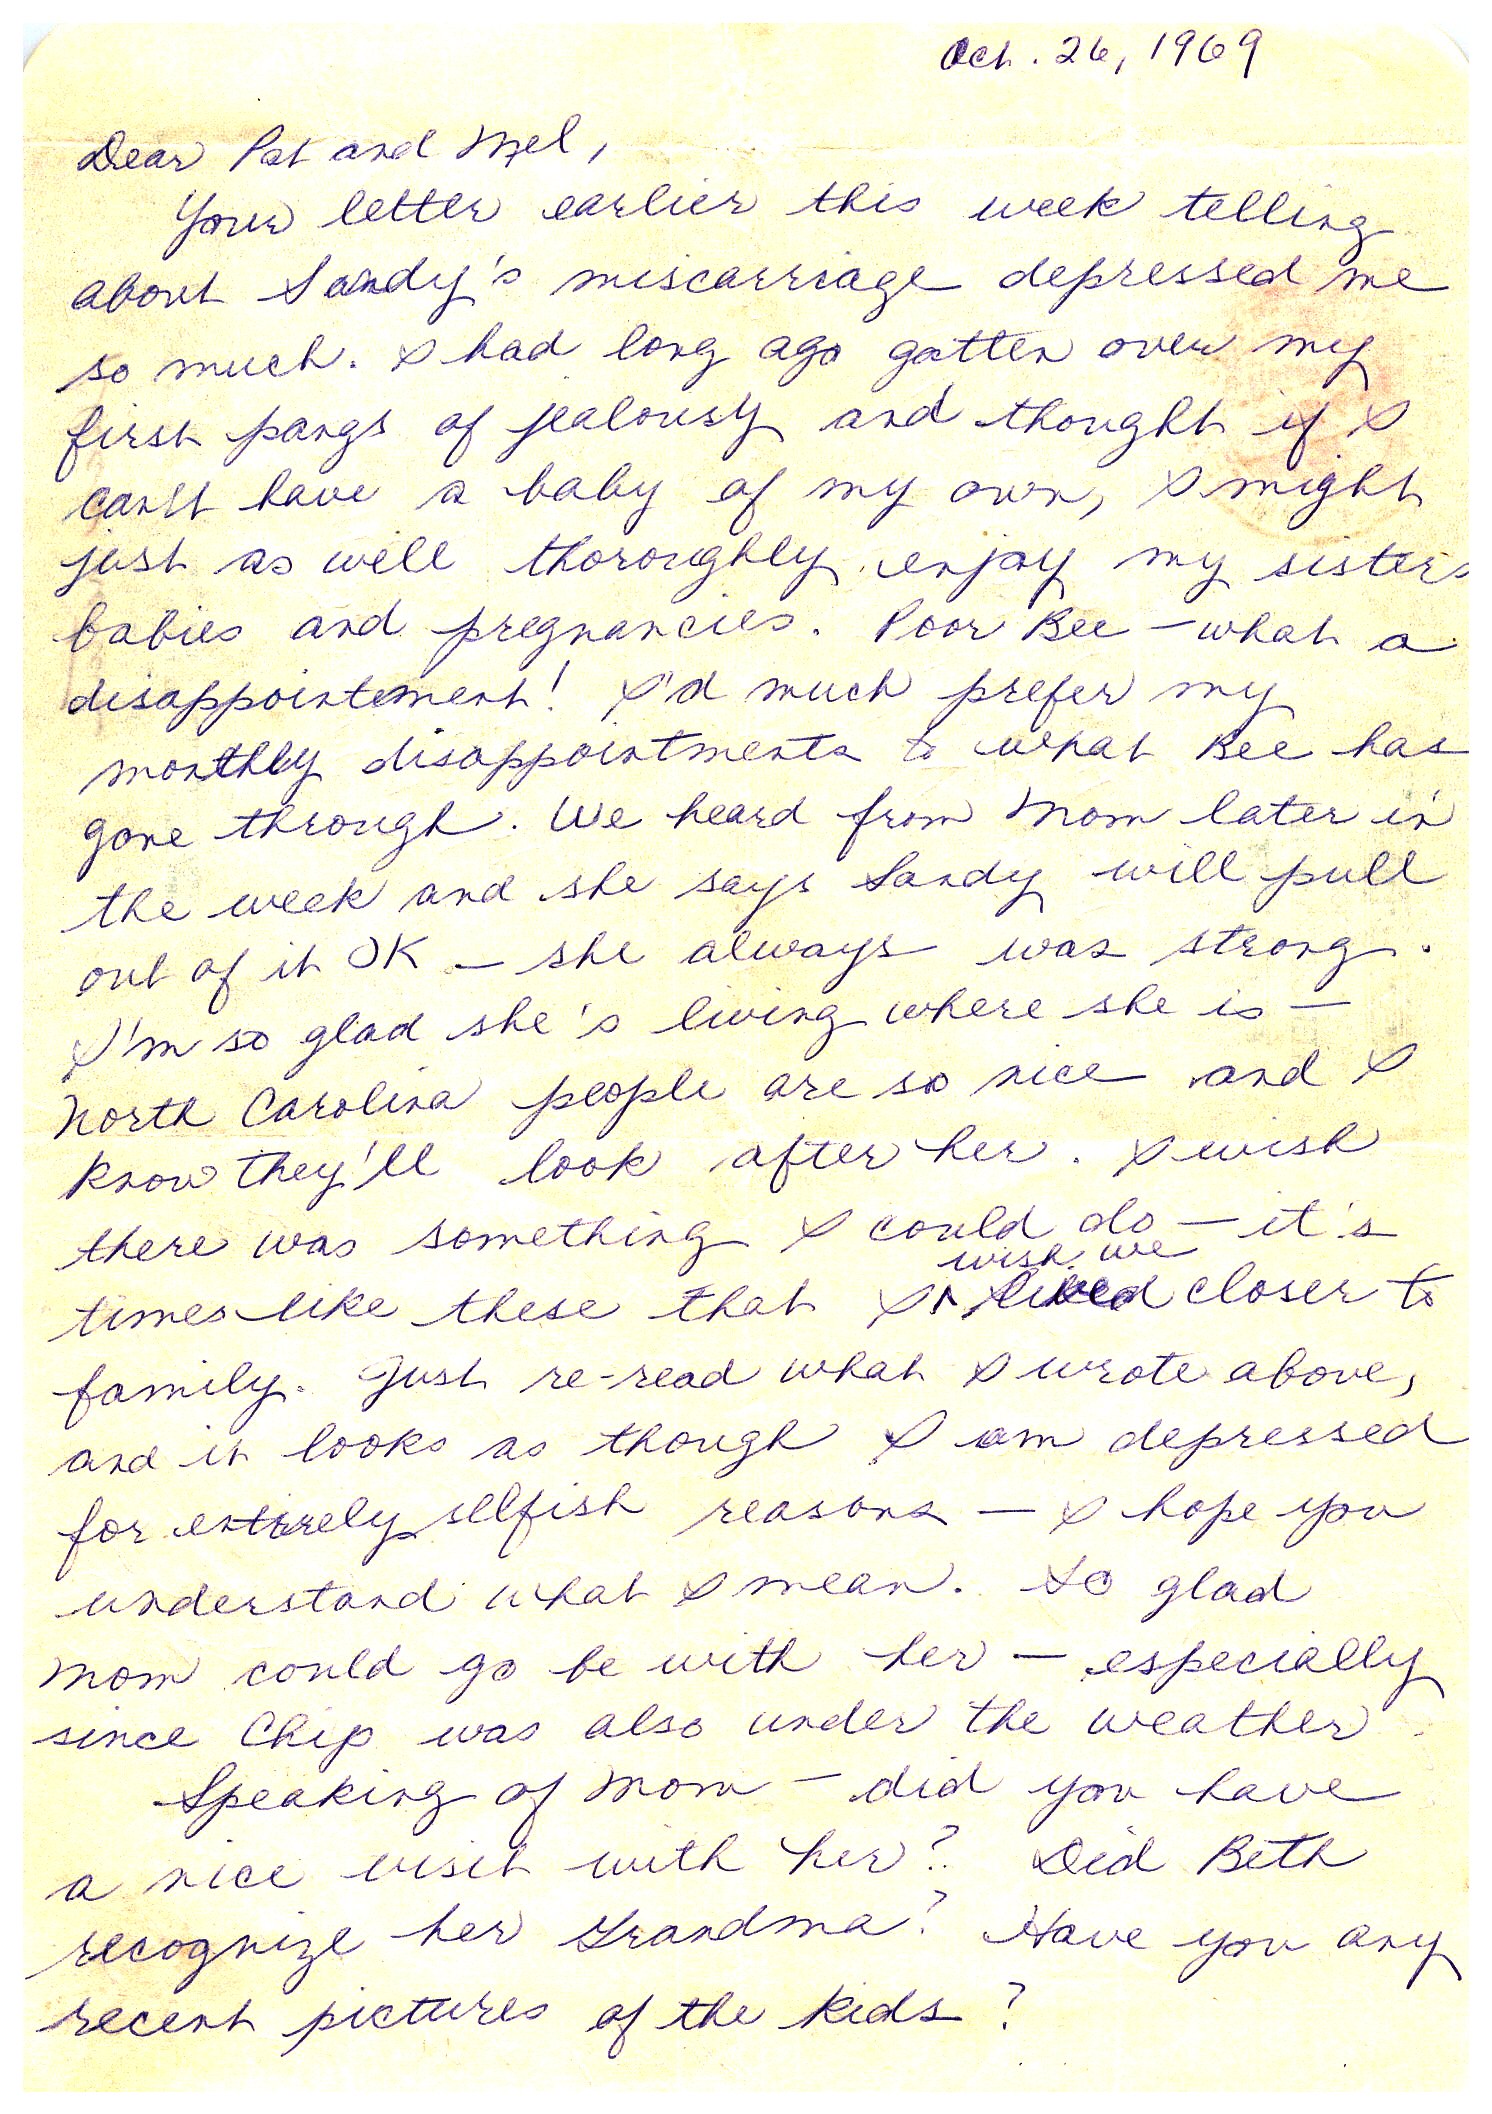 Oct. 26, 1969
Dear Pat and Mel,
Your letter earlier this week telling
about Sandy's miscarriage depressed me
so much. I had long ago gotten over my
first pangs of jealousy and thought if I
can't have a baby of my own, I might
just as well thoroughly enjoy my sisters
babies and pregnancies. Poor Bee — what a
disappointement! I'd much prefer my
monthly disappointments to what Bee has
gone through. We heard from Mom later in
the week and she says Sandy will pull
out of it OK — she always was strong.
I'm so glad she's living where she is —
North Carolina people are so nice and I
know they'll look after her. I wish
there was something I could do — it's
wish we
times like these that I ^ lived closer to
family. Just re-read what I wrote above,
and it looks as though I am depressed
for entirely selfish reasons — I hope you
understand what I mean. So glad
Mom could go be with her — especially
since Chip was also under the weather.
Speaking of Mom — did you have
a nice visit with her? Did Beth
recognize her Grandma? Have you any
recent pictures of the kids?